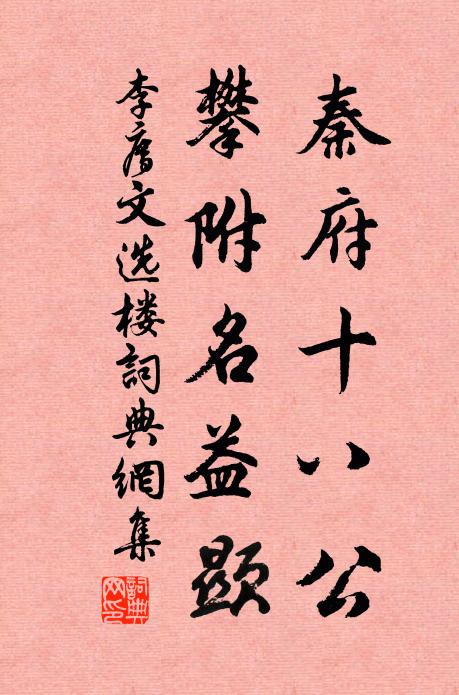 秦府十八公
攀附名益顯
李廌文选楼詞典網集
詞典网印